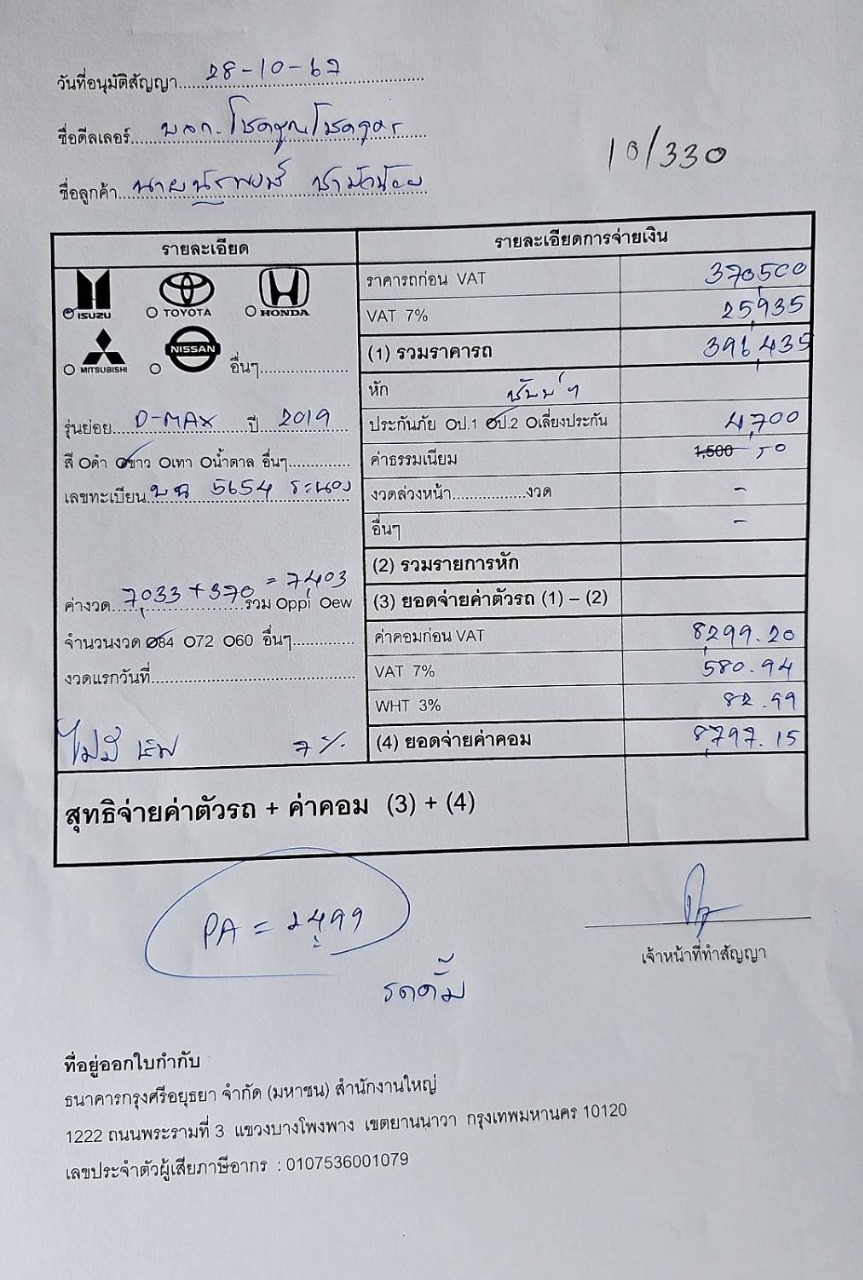 วันที่อนุมัติสัญญา 28-10-67
ชื่อดีลเลอร์ บจก. โชคคูณโชคคูคาร์
10/330
ชื่อลูกค้า นาย
รายละเอียด
รายละเอียดการจ่ายเงิน
ISUZU TOYOTA HONDA
MITSUBISHI NISSAN อื่นๆ
รุ่นย่อย D-MAX ปี 2019
สี Oดำ Oขาว Oเทา Oน้ำตาล อื่นๆ
เลขทะเบียน บฉ 5654 ระนอง
ค่างวด 7,033 + 370 = 7,403 รวม Oppi Oew
จำนวนงวด O84 O72 O60 อื่นๆ
งวดแรกวันที่
ไม่มี 7%
ราคารถก่อน VAT 370,500
VAT 7% 25,935
(1) รวมราคารถ 396,435
หัก
ประกันภัย Oป.1 Oป.2 Oเลี่ยงประกัน 4,700
ค่าธรรมเนียม 1,500 50
งวดล่วงหน้า.................งวด -
อื่นๆ -
(2) รวมรายการหัก
(3) ยอดจ่ายค่าตัวรถ (1) – (2)
ค่าคอมก่อน VAT 8,299.20
VAT 7% 580.94
WHT 3% 82.99
(4) ยอดจ่ายค่าคอม 8,797.15
สุทธิจ่ายค่าตัวรถ + ค่าคอม (3) + (4)
PA = 2,499
เจ้าหน้าที่ทำสัญญา
รถดั้ม
ที่อยู่ออกใบกำกับ
ธนาคารกรุงศรีอยุธยา จำกัด (มหาชน) สำนักงานใหญ่
1222 ถนนพระรามที่ 3 แขวงบางโพงพาง เขตยานนาวา กรุงเทพมหานคร 10120
เลขประจำตัวผู้เสียภาษีอากร : 0107536001079